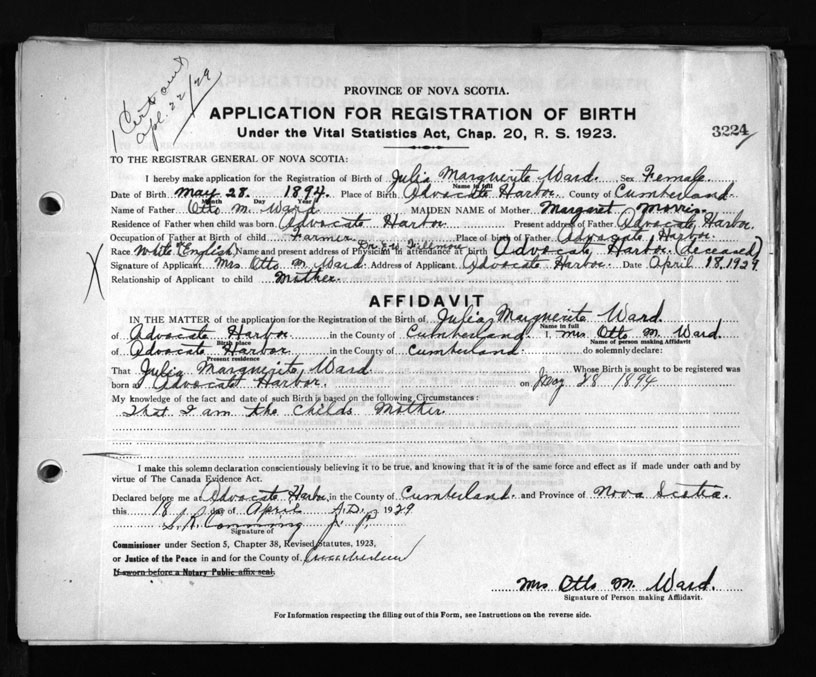 1 Cert out
Apl. 22/29
PROVINCE OF NOVA SCOTIA.
APPLICATION FOR REGISTRATION OF BIRTH
Under the Vital Statistics Act, Chap. 20, R. S. 1923.
3224
TO THE REGISTRAR GENERAL OF NOVA SCOTIA:
I hereby make application for the Registration of Birth of Julia Marguerite Ward. Sex Female.
Name in full
Date of Birth May 28. 1894. Place of Birth Advocate Harbor. County of Cumberland.
Month Day Year
Name of Father Otto M. Ward MAIDEN NAME of Mother Margaret Morris
Residence of Father when child was born Advocate Harbor Present address of Father Advocate Harbor.
Occupation of Father at Birth of child Farmer Place of birth of Father Advocate Harbor.
Race White (English) Name and present address of Physician in attendance at birth Dr. Fillmore Advocate Harbor (deceased)
Signature of Applicant Mrs Otto M. Ward. Address of Applicant Advocate Harbor. Date April 18. 1929
Relationship of Applicant to child Mother.
X
AFFIDAVIT
IN THE MATTER of the application for the Registration of the Birth of Julia Marguerite Ward.
Name in full
of Advocate Harbor in the County of Cumberland. I, Mrs Otto M. Ward
Birth place Name of person making Affidavit
of Advocate Harbor in the County of Cumberland. do solemnly declare:
Present residence
That Julia Marguerite Ward Whose Birth is sought to be registered was
born Advocate Harbor. on May 28 1894
My knowledge of the fact and date of such Birth is based on the following Circumstances:
That I am the Childs Mother
I make this solemn declaration conscientiously believing it to be true, and knowing that it is of the same force and effect as if made under oath and by
virtue of The Canada Evidence Act.
Declared before me at Advocate Harbor, in the County of Cumberland. and Province of Nova Scotia.
this 18 day of April A.D. 1929
J. P.
Signature of
Commissioner under Section 5, Chapter 38, Revised Statutes, 1923,
or Justice of the Peace in and for the County of Cumberland
If sworn before a Notary Public affix seal.
Mrs Otto M. Ward.
Signature of Person making Affidavit.
For Information respecting the filling out of this Form, see Instructions on the reverse side.